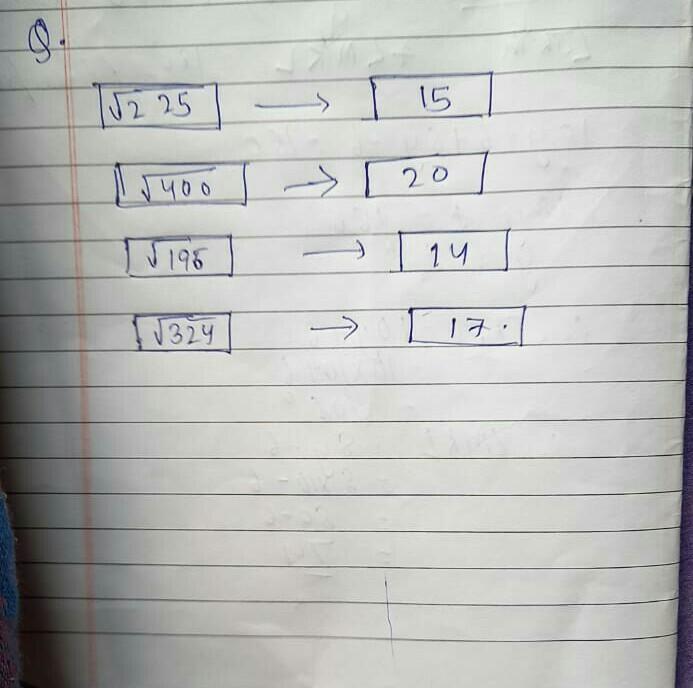 Q.
√225 → 15
√400 → 20
√196 → 14
√324 → 17.